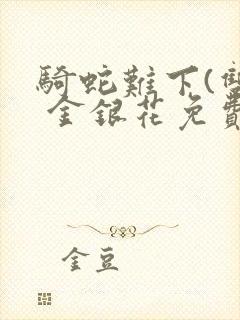 騎蛇難下(雙
金銀花免費
金豆